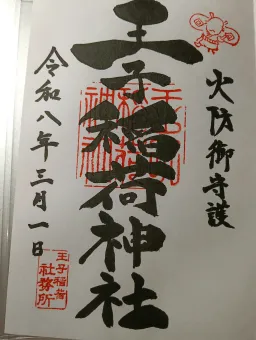 火防御守護
王子稲荷神社
令和八年三月一日
王子稲荷
社務所